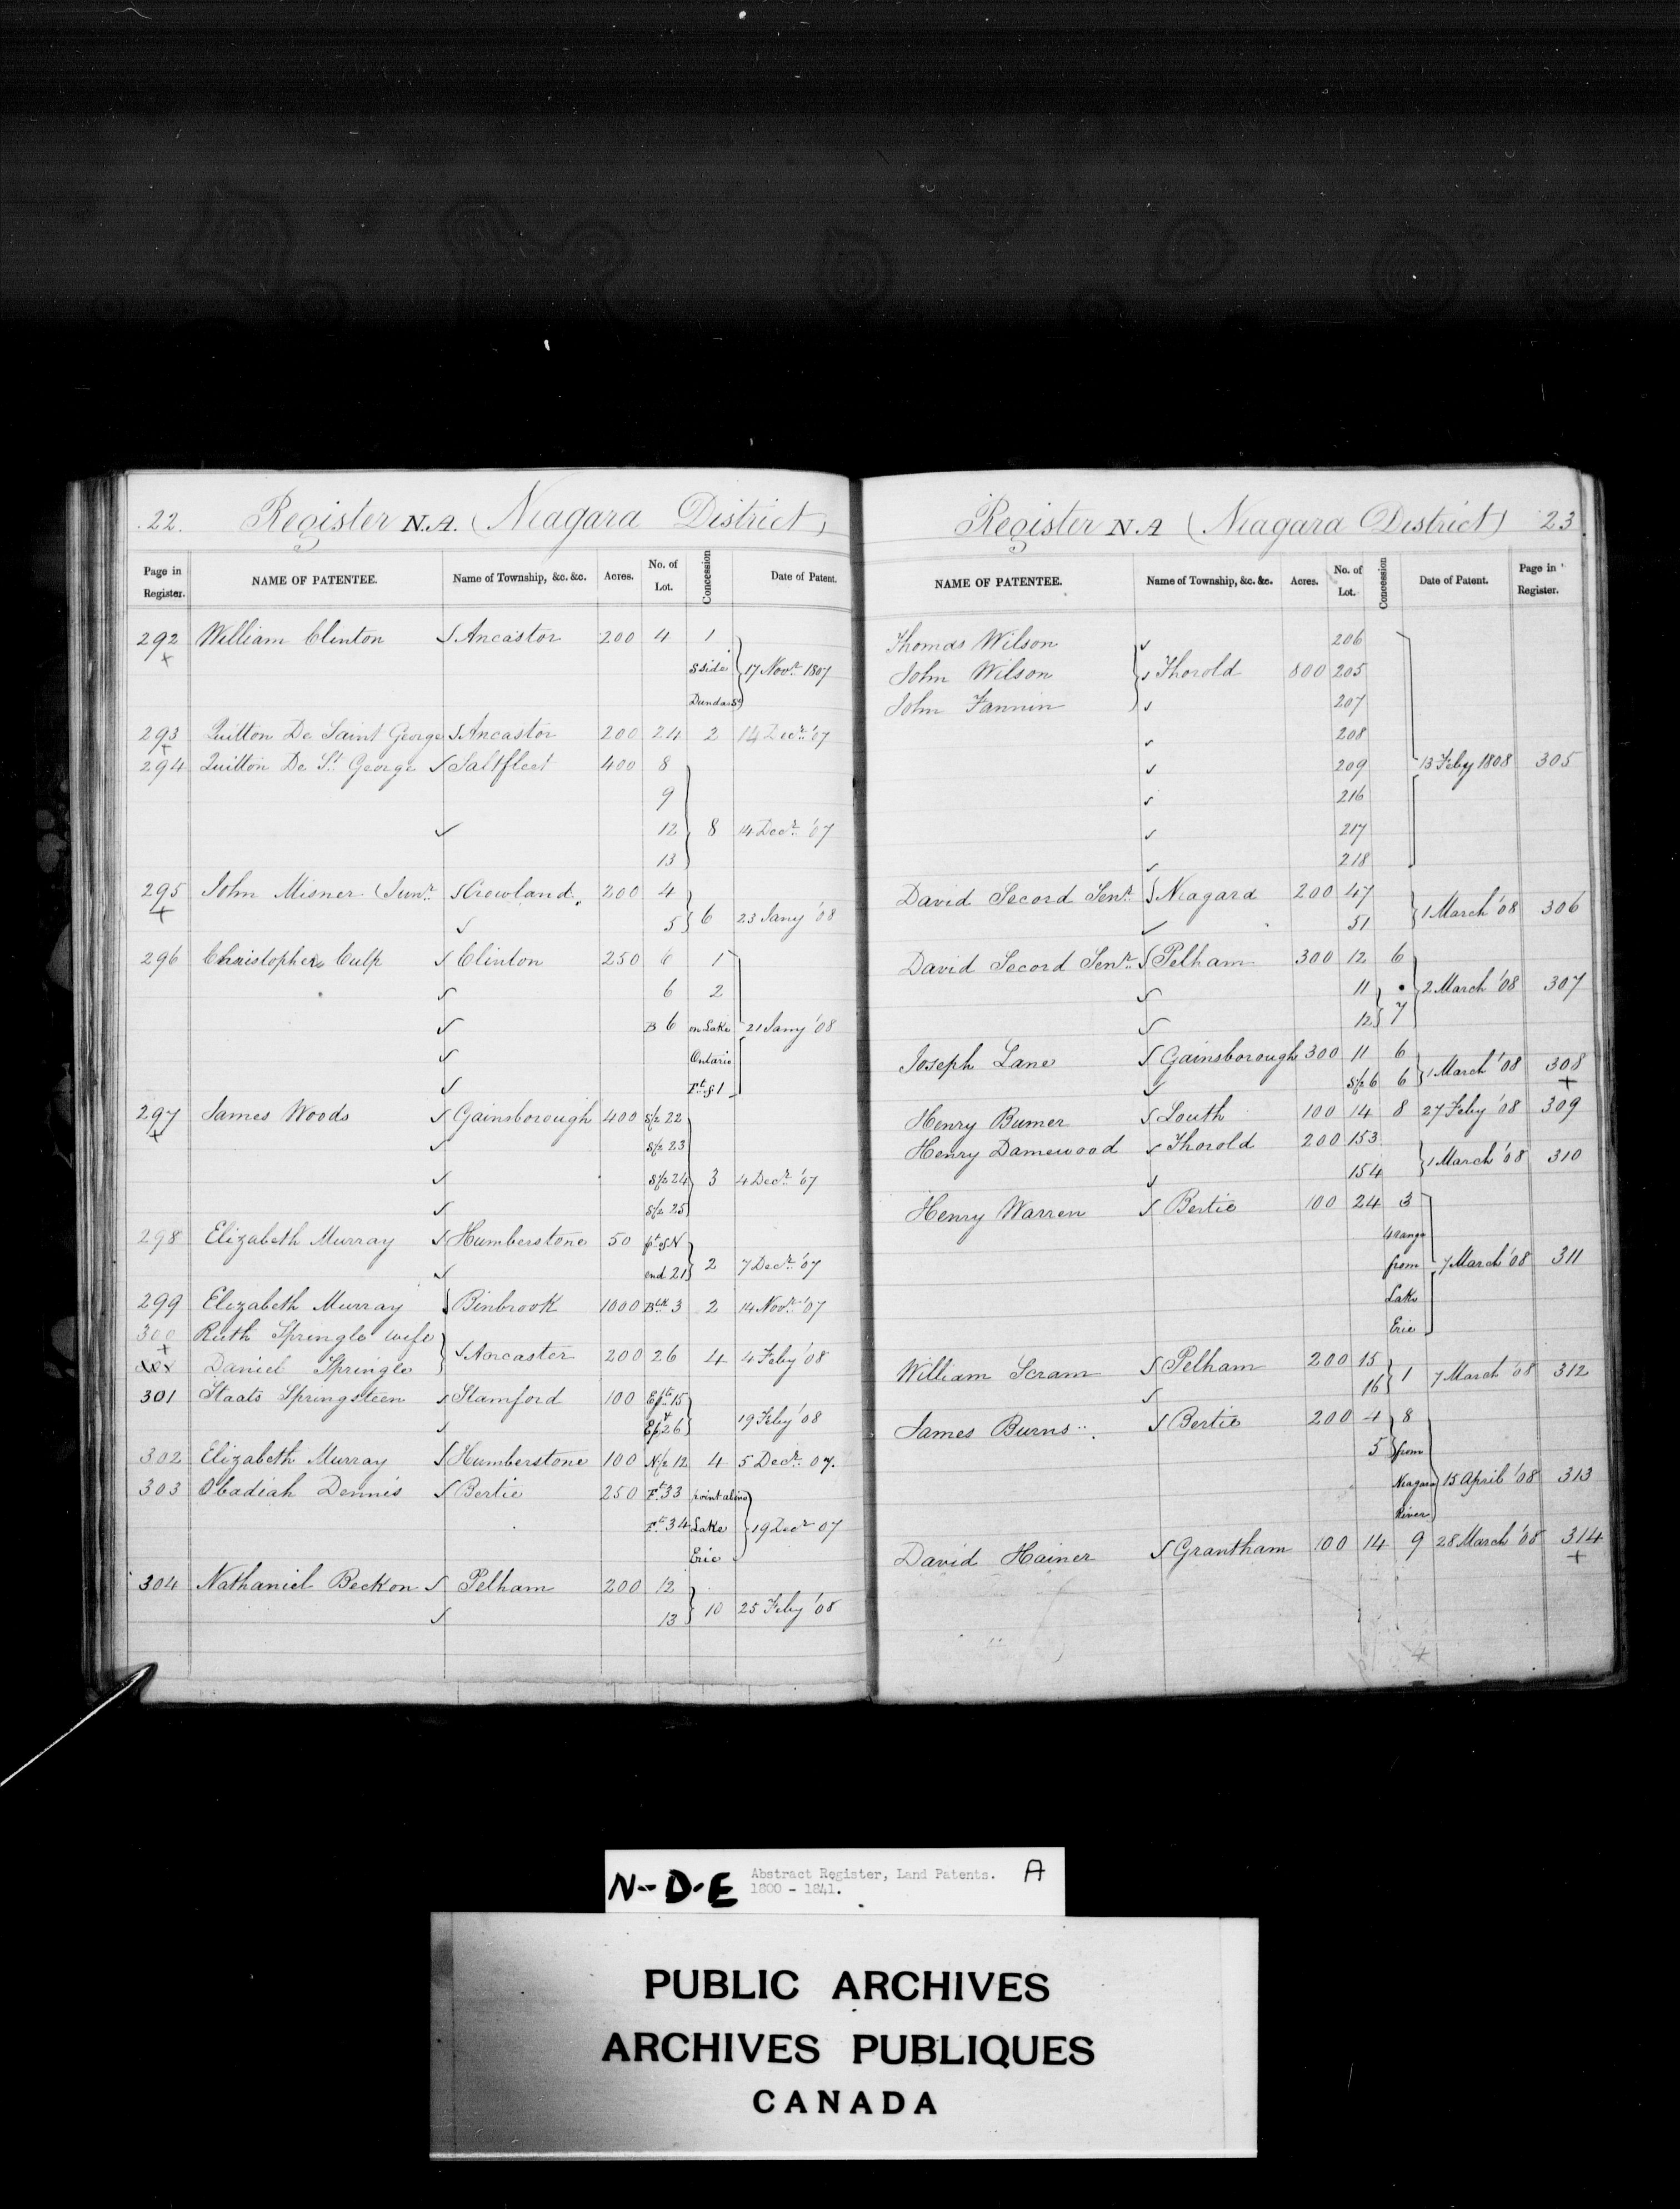 22. Register N.A. (Niagara District)
Page in Register. NAME OF PATENTEE. Name of Township, &c. &c. Acres. No. of Lot. Concession Date of Patent.
292 William Clinton Ancaster 200 4 1
S side 17 Novr. 1807
Dundas St
293 Quitton De Saint George Ancaster 200 24 2 14 Decr. '07
294 Quitton De St. George Saltfleet 400 8
9
12 8 14 Decr. '07
13
295 John Misner (Junr. Crowland. 200 4
5 6 23 Jany '08
296 Christopher Culp Clinton 250 6 1
6 2
B 6 on Lake 21 Jany '08
Ontario
Ft. of 1
297 James Woods Gainsborough 400 S/2 22
S/2 23
S/2 24 3 4 Decr. '07
S/2 25
298 Elizabeth Murray Humberstone 50 pt of N
end 21 2 7 Decr. '07
299 Elizabeth Murray Binbrook 1000 Blk 3 2 14 Novr. '07
300 Ruth Springle wife
Ancaster 200 26 4 4 Feby '08
Daniel Springle
301 Staats Springsteen Stamford 100 E pt. 15
E pt 26 19 Feby '08
302 Elizabeth Murray Humberstone 100 N/2 12 4 5 Decr. 07.
303 Obadiah Dennis Bertie 250 Ft. 33 point abino
Ft. 34 Lake 19 Decr 07
Erie
304 Nathaniel Beckon Pelham 200 12
13 10 25 Feby '08
Register N.A (Niagara District) 23
NAME OF PATENTEE. Name of Township, &c. &c. Acres. No. of Lot. Concession Date of Patent. Page in Register.
Thomas Wilson 206
John Wilson Thorold 800 205
John Fannin 207
208
209 13 Feby 1808 305
216
217
218
David Secord Senr. Niagara 200 47
51 1 March '08 306
David Secord Senr. Pelham 300 12 6
11 2 March '08 307
12 7
Joseph Lane Gainsborough 300 11 6
S/2 6 6 1 March '08 308
Henry Bumer Louth 100 14 8 27 Feby '08 309
Henry Damewood Thorold 200 153
154 1 March '08 310
Henry Warren Bertie 100 24 3
4 range
from 7 March '08 311
Lake
Erie
William Scram Pelham 200 15
16 1 7 March '08 312
James Burns Bertie 200 4 8
5 from
Niagara 15 April '08 313
River
David Hainer Grantham 100 14 9 28 March '08 314
N-D-E Abstract Register, Land Patents. A
1800 - 1841.
PUBLIC ARCHIVES
ARCHIVES PUBLIQUES
CANADA